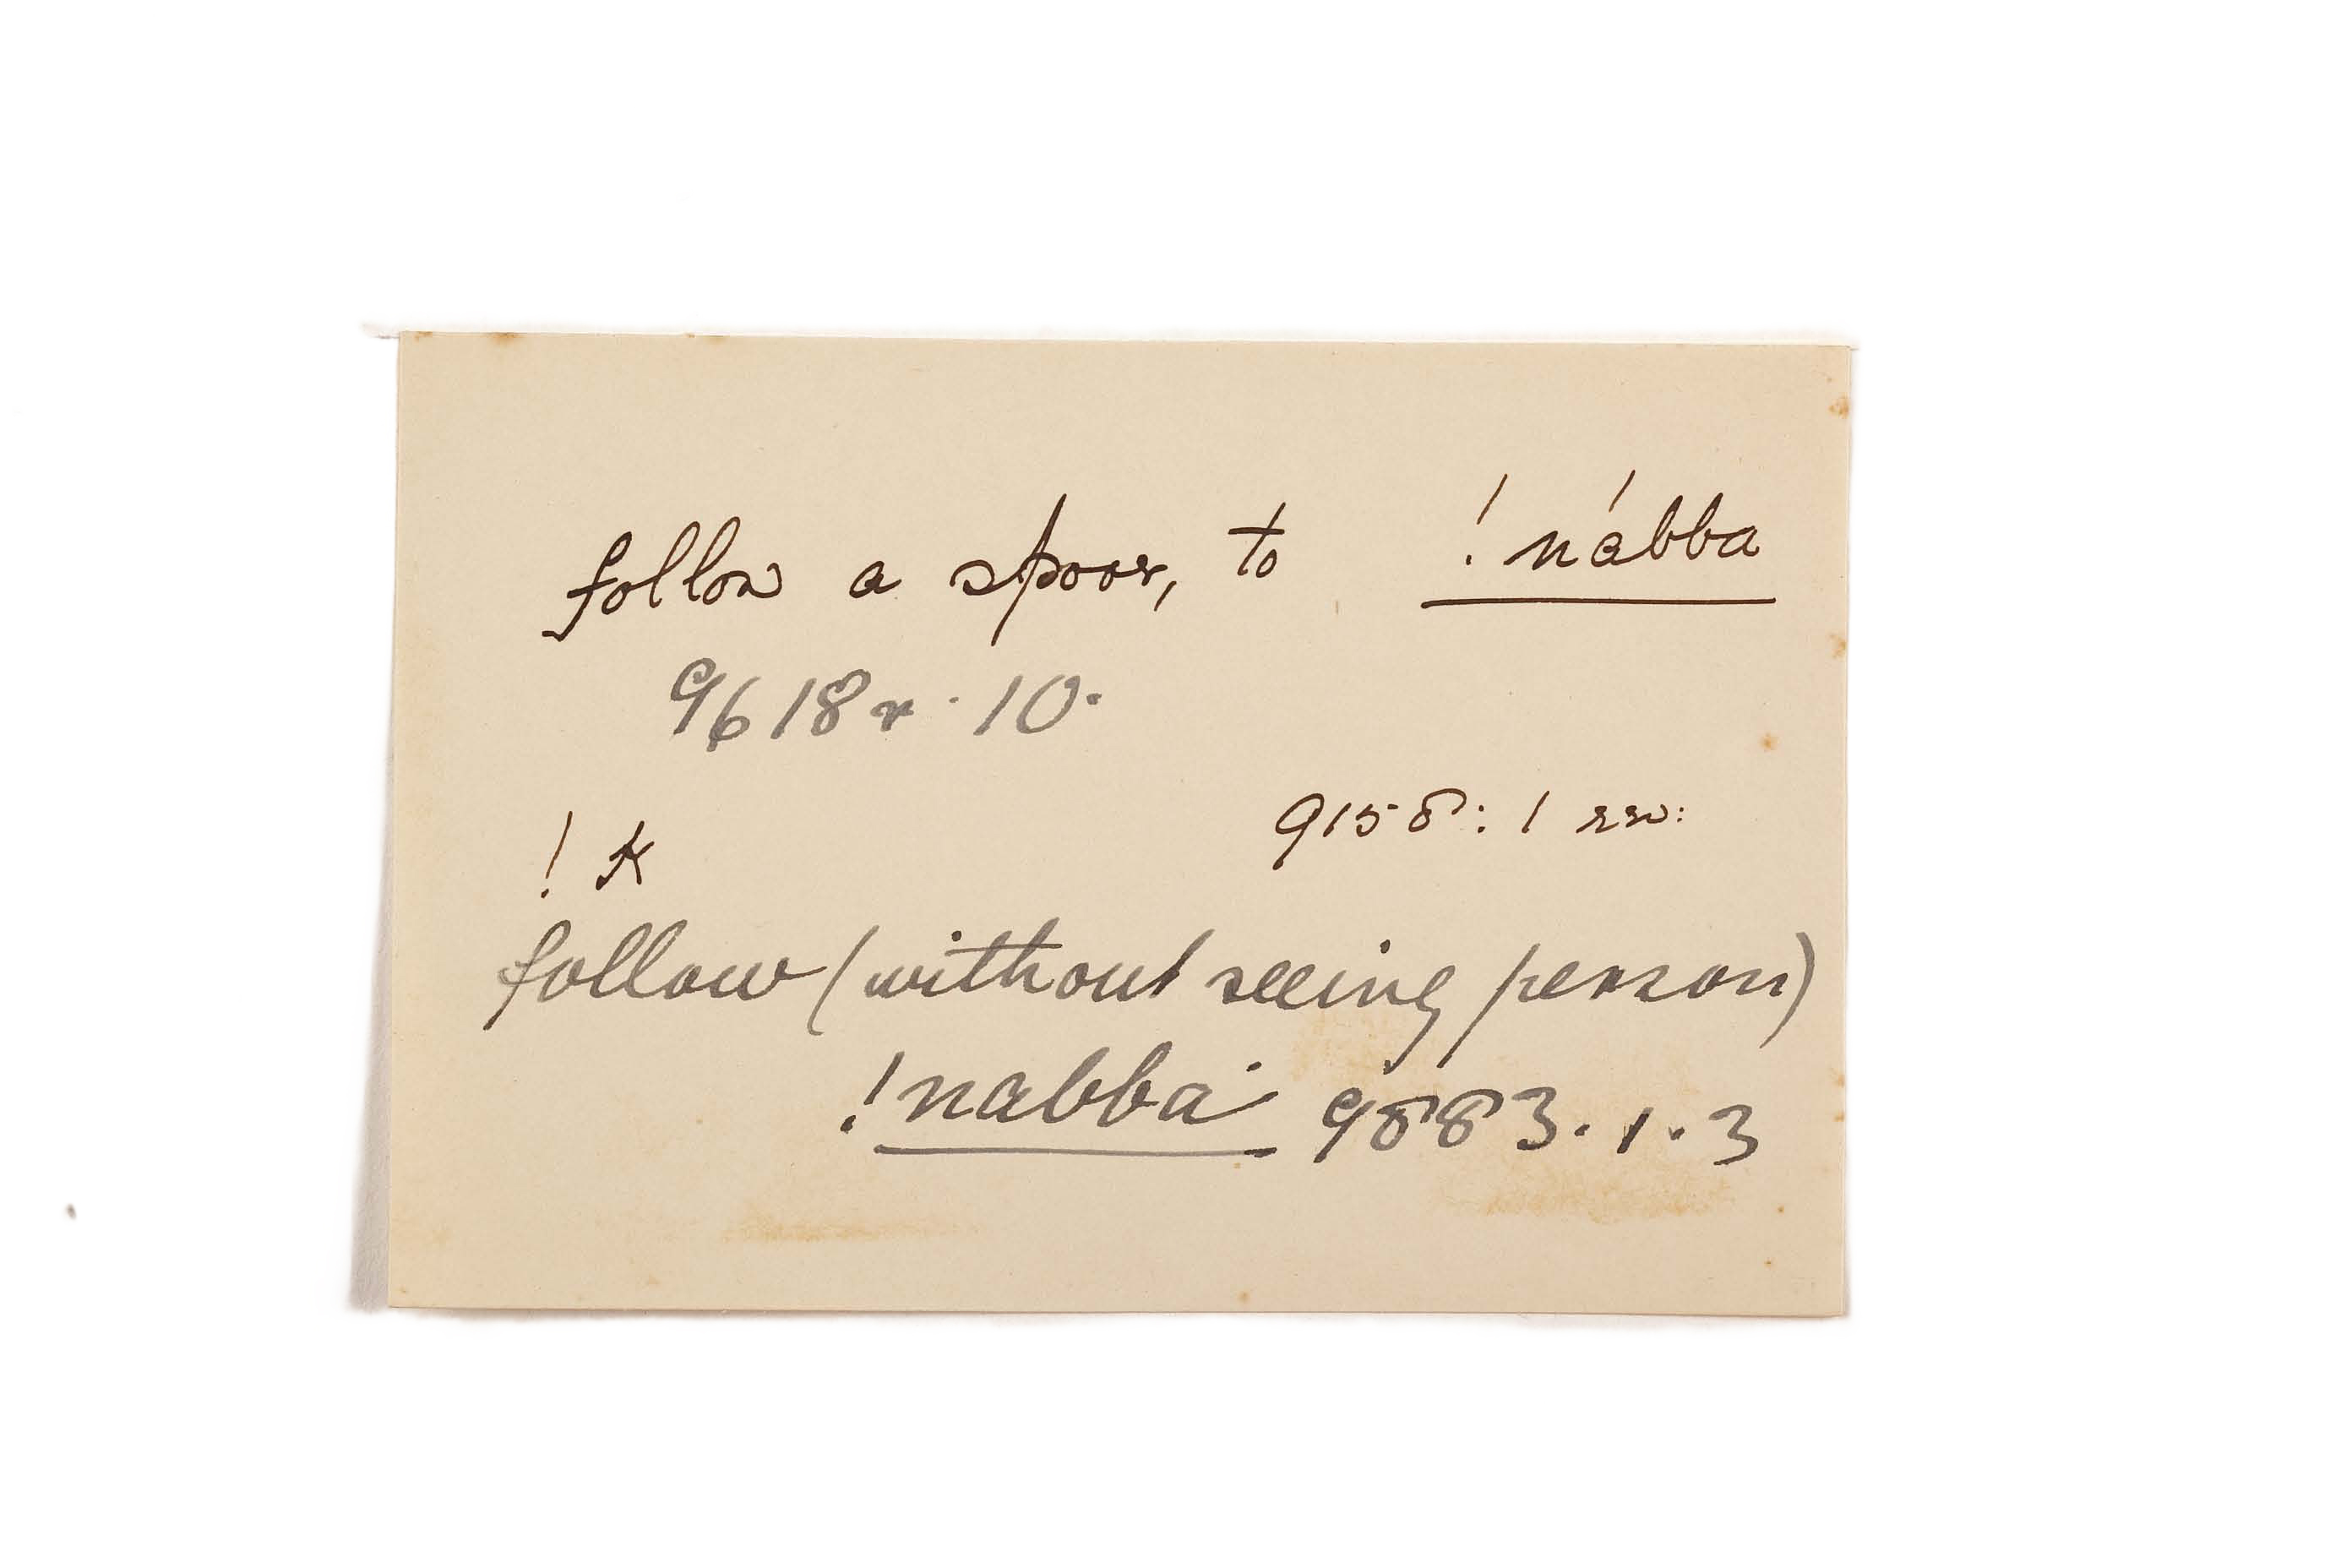 follow a spoor, to ! nábba
9618r · 10 ·
9158 : 1 rev:
! k
follow (without seeing person)
!nabba 9883 . 1 . 3